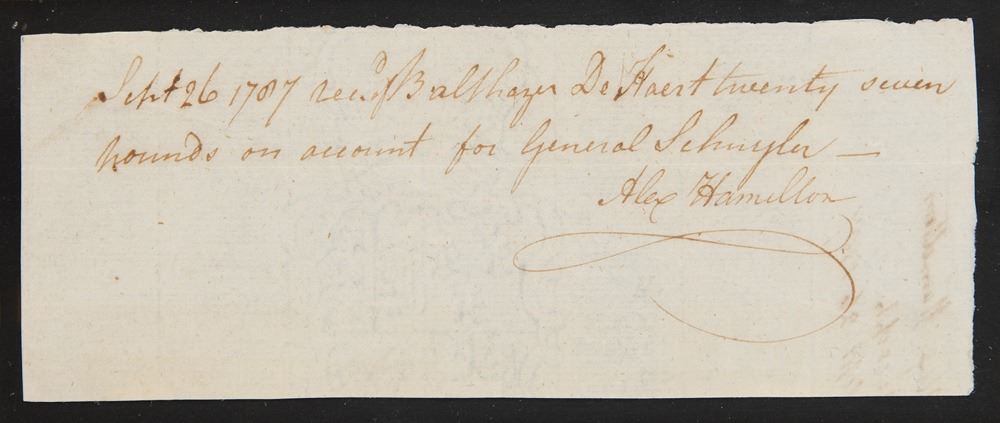 Sept 26 1787 recd of Balthazer De Haert twenty seven
pounds on account for General Schuyler —
Alex Hamilton